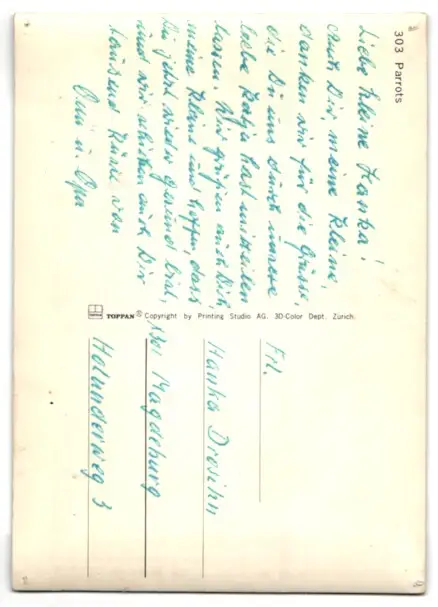 303 Parrots
Liebe kleine Hanka!
Auch Dir, meine Kleine,
danken wir für die Grüsse,
die Du uns durch unsere
liebe Katja hast mitteilen
lassen. Wir grüßen auch Dich,
meine Kleine und hoffen, dass
Du jetzt wieder gesund bist,
und wir schicken auch Dir
tausend Küssl von
Omi u. Opa
TOPPAN ® Copyright by Printing Studio AG. 3D-Color Dept. Zürich.
Frl.
Hanka Drosihn
301 Magdeburg
Holunderweg 3